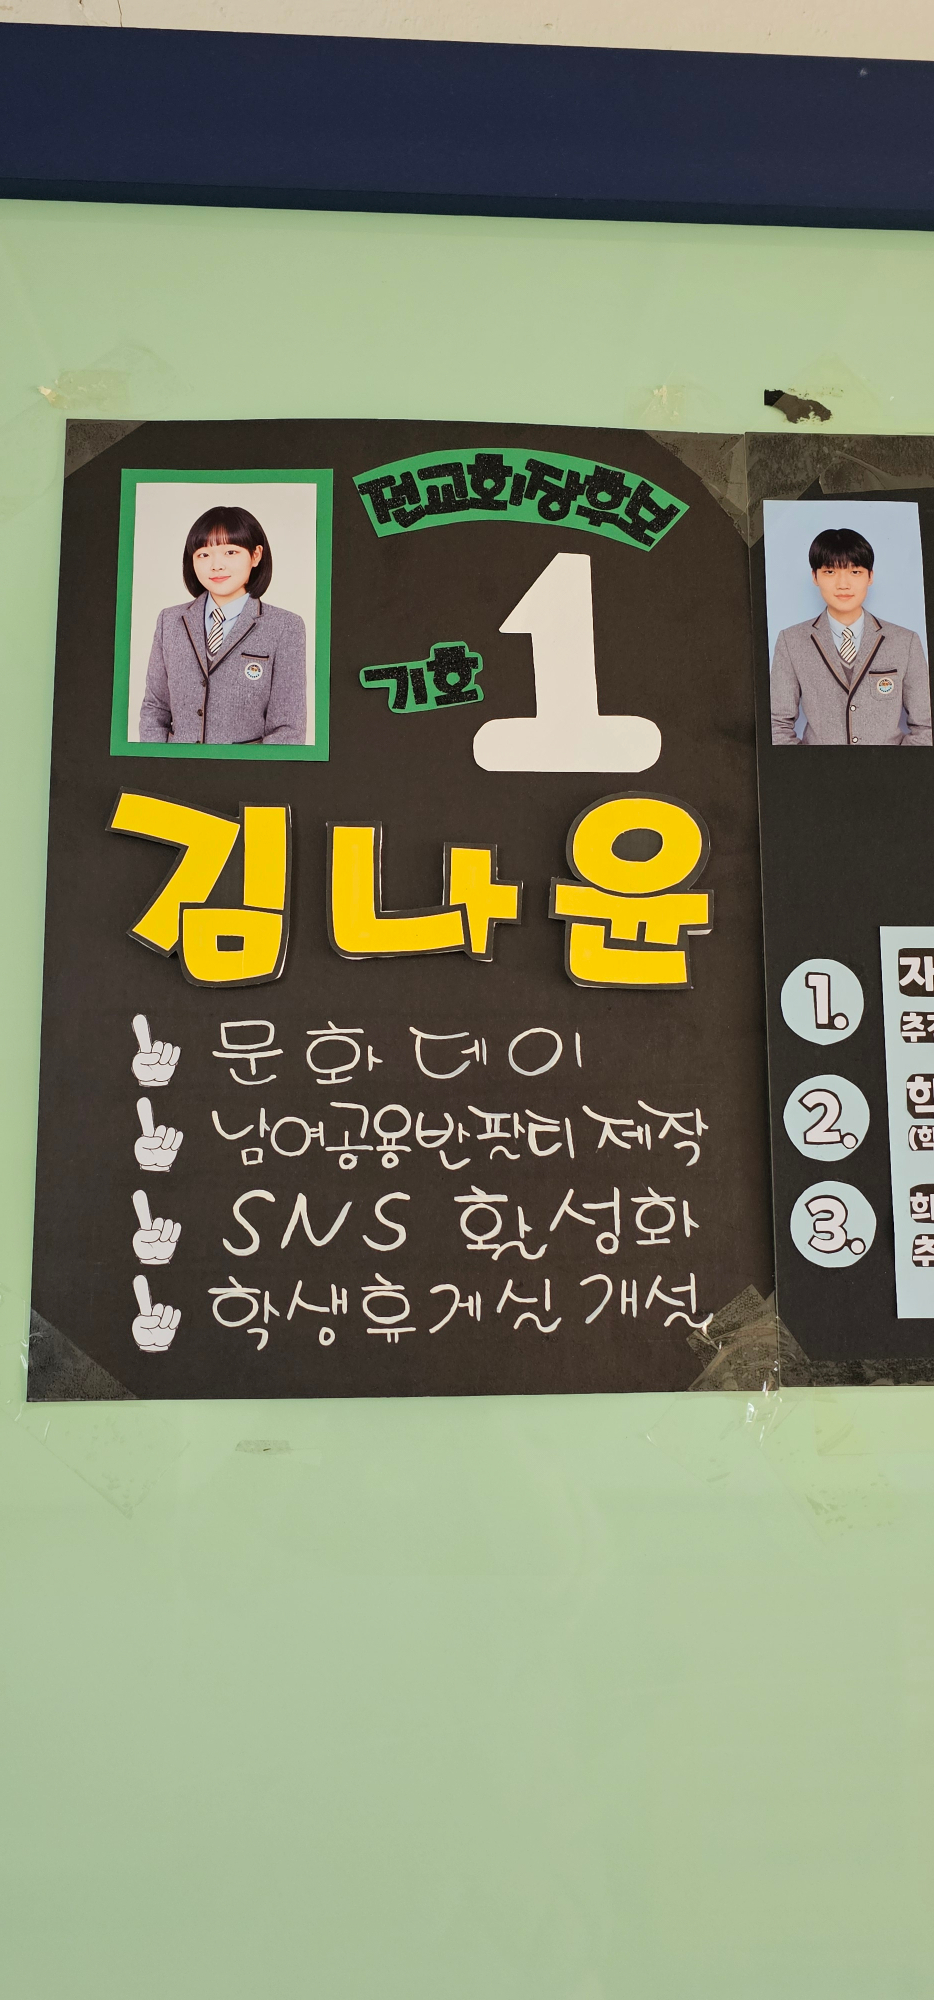 전교회장후보
기호 1
김나윤
문화 데이
남여공용반팔티 제작
SNS 활성화
학생휴게실 개선
1.
2.
3.